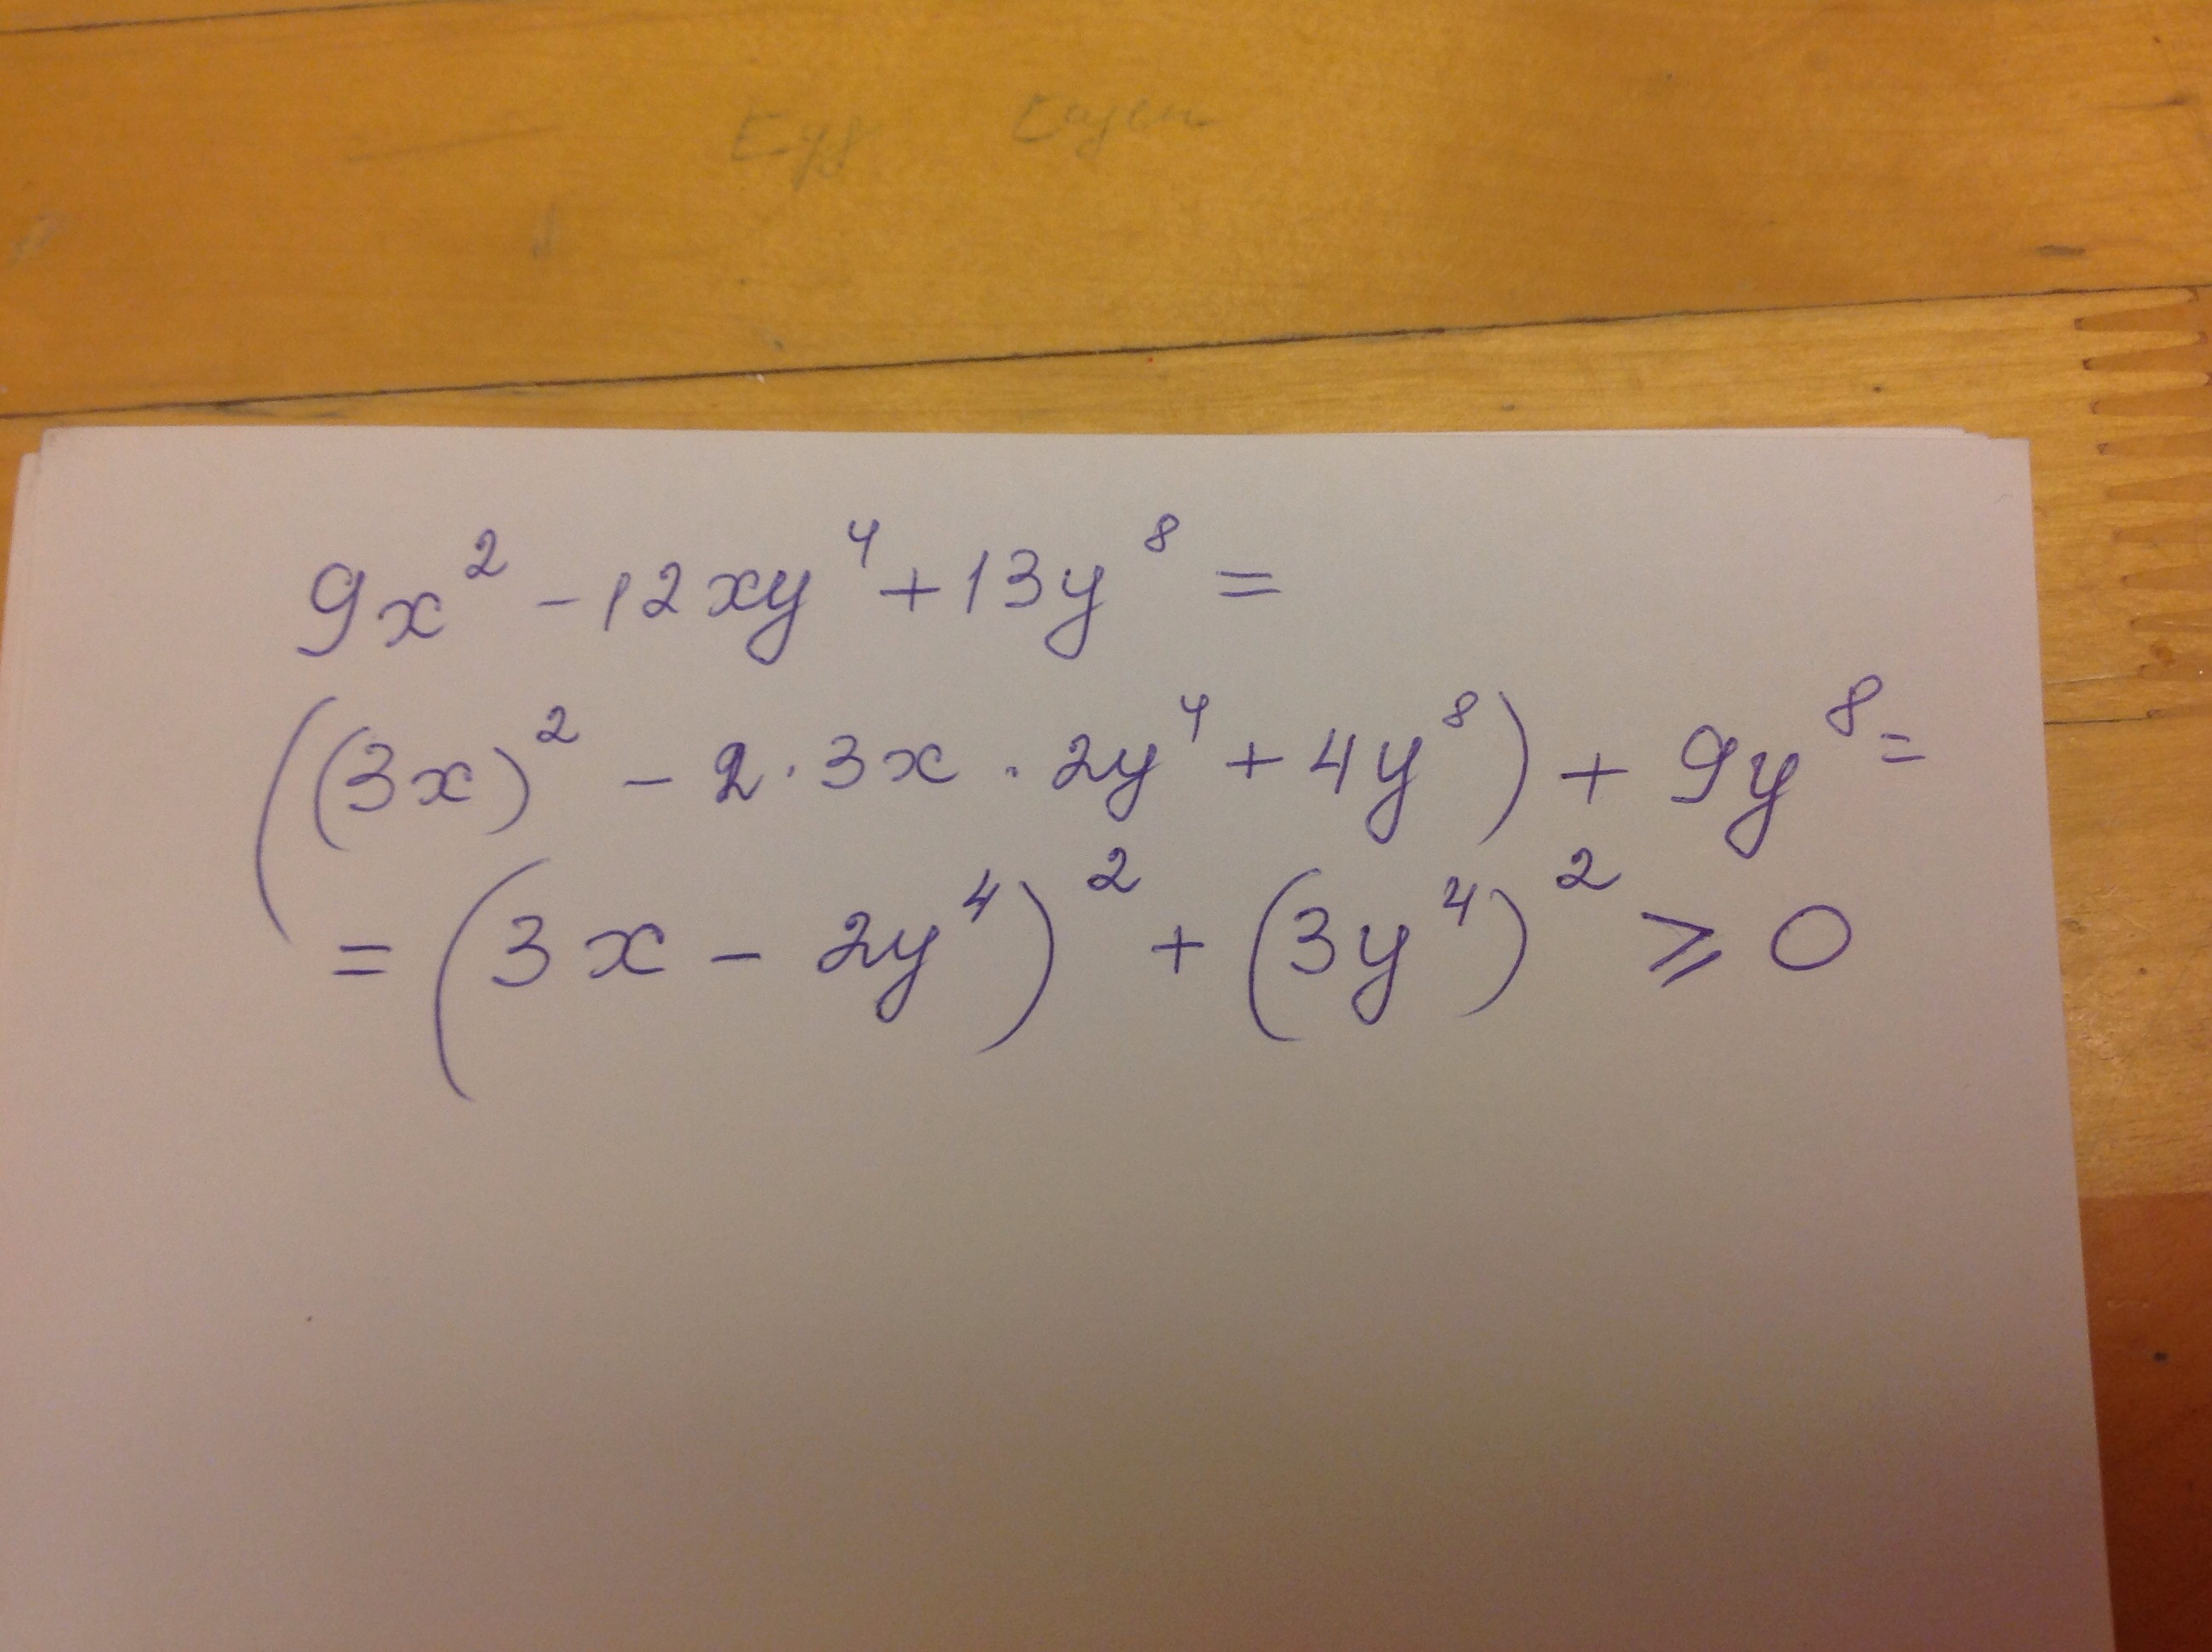 9x² - 12xy⁴ + 13y⁸ =
((3x)² - 2·3x·2y⁴ + 4y⁸) + 9y⁸ =
= (3x - 2y⁴)² + (3y⁴)² ⩾ 0